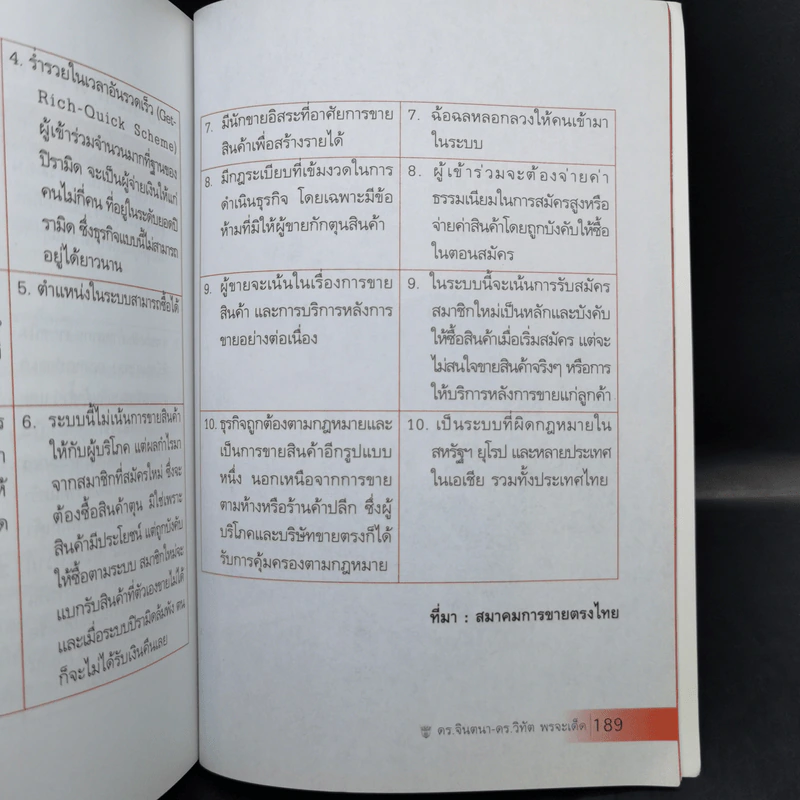 4. ร่ำรวยในเวลาอันรวดเร็ว (Get-
Rich-Quick Scheme)
ผู้เข้าร่วมจำนวนมากที่ฐานของ
ปิรามิด จะเป็นผู้จ่ายเงินให้แก่
คนไม่กี่คน ที่อยู่ในระดับยอดปิ
รามิด ซึ่งธุรกิจแบบนี้ไม่สามารถ
อยู่ได้ยาวนาน
5. ตำแหน่งในระบบสามารถซื้อได้
6. ระบบนี้ไม่เน้นการขายสินค้า
ให้กับผู้บริโภค แต่ผลกำไรมา
จากสมาชิกที่สมัครใหม่ ซึ่งจะ
ต้องซื้อสินค้าตุน มิใช่เพราะ
สินค้ามีประโยชน์ แต่ถูกบังคับ
ให้ซื้อตามระบบ สมาชิกใหม่จะ
แบกรับสินค้าที่ตัวเองขายไม่ได้
และเมื่อระบบปิรามิดล้มพัง ตน
ก็จะไม่ได้รับเงินคืนเลย
7. มีนักขายอิสระที่อาศัยการขาย
สินค้าเพื่อสร้างรายได้
7. ฉ้อฉลหลอกลวงให้คนเข้ามา
ในระบบ
8. มีกฎระเบียบที่เข้มงวดในการ
ดำเนินธุรกิจ โดยเฉพาะมีข้อ
ห้ามที่มิให้ผู้ขายกักตุนสินค้า
8. ผู้เข้าร่วมจะต้องจ่ายค่า
ธรรมเนียมในการสมัครสูงหรือ
จ่ายค่าสินค้าโดยถูกบังคับให้ซื้อ
ในตอนสมัคร
9. ผู้ขายจะเน้นในเรื่องการขาย
สินค้า และการบริการหลังการ
ขายอย่างต่อเนื่อง
9. ในระบบนี้จะเน้นการรับสมัคร
สมาชิกใหม่เป็นหลักและบังคับ
ให้ซื้อสินค้าเมื่อเริ่มสมัคร แต่จะ
ไม่สนใจขายสินค้าจริงๆ หรือการ
ให้บริการหลังการขายแก่ลูกค้า
10. ธุรกิจถูกต้องตามกฎหมายและ
เป็นการขายสินค้าอีกรูปแบบ
หนึ่ง นอกเหนือจากการขาย
ตามห้างหรือร้านค้าปลีก ซึ่งผู้
บริโภคและบริษัทขายตรงก็ได้
รับการคุ้มครองตามกฎหมาย
10. เป็นระบบที่ผิดกฎหมายใน
สหรัฐฯ ยุโรป และหลายประเทศ
ในเอเชีย รวมทั้งประเทศไทย
ที่มา : สมาคมการขายตรงไทย
ดร.จินตนา-ดร.วิทัต พรจะเด็ด 189